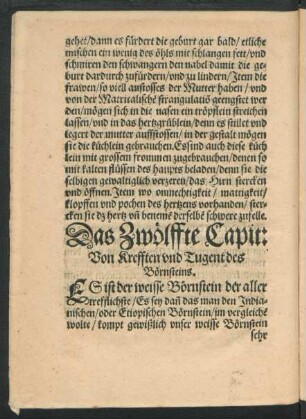 gehet/dann es fürdert die geburt gar bald/ etliche
mischen ein wenig des öhls mit schlangen fett/vnd
schmiren den schwangern den nabel damit die ge-
burt dardurch zufürdern/vnd zu lindern/Item die
frawen/so viell auffstosses der Mutter haben/vnd
von der Matricalischē strangulatiō geengstet wer
den/mögen sich in die nasen ein tröpflein streichen
lassen/vnd in das hertzgrüblein/denn es stillet vnd
legert der mutter auffstossen/in der gestalt mögen
sie die küchlein gebrauchen. Es sind auch diese küch
lein mit grossem frommen zugebrauchen/denen so
mit kalten flüssen des haupts beladen/denn sie die
selbigen gewaltiglich verzeren/das Hirn stercken
vnd öffnen. Item wo onmechtigkeit/ mattigkeit/
klopffen vnd pochen des hertzens vorhanden/ster-
cken sie dz hertz vñ benemē derselbē schwere zufelle.
Das Zwölffte Capit:
Von Krefften vnd Tugent des
Börnsteins.
ES ist der weisse Börnstein der aller
trefflichste/Es sey dañ das man den India-
nischen/oder Etiopischen Börnstein/im vergleichē
wolte/kompt gewißlich vnser weisse Börnstein
sehr